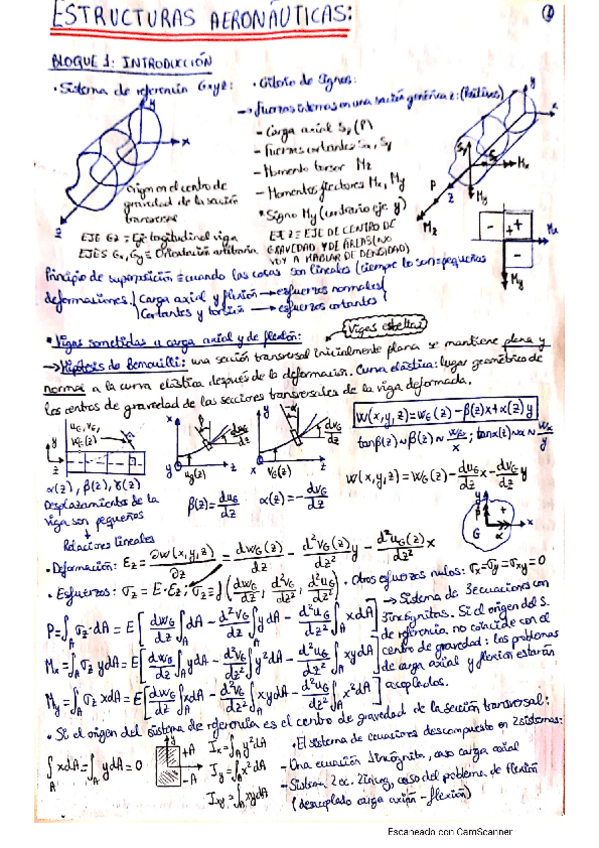 ESTRUCTURAS AERONÁUTICAS:
1
BLOQUE 1: INTRODUCCIÓN
• Sistema de referencia Gxyz:
• Criterio de signos:
→ Fuerzas internas en una sección genérica z: (Positivos)
- Carga axial Sz (P)
- Fuerzas cortantes Sx, Sy
- Momento torsor Mz
- Momentos flectores Mx, My
* Signo My (contrario eje y)
EJE Z = EJE DE CENTRO DE
GRAVEDAD Y DE ÁREAS (NO
VOY A HABLAR DE DENSIDAD)
Origen en el centro de
gravedad de la sección
transversal
EJE GZ = Eje longitudinal viga
EJES Gx, Gy = Orientación arbitraria
Principio de superposición = cuando las cosas son lineales (siempre lo son = pequeñas
deformaciones.
Carga axial y flexión → esfuerzos normales
Cortantes y torsión → esfuerzos cortantes
• Vigas sometidas a carga axial y de flexión:
Vigas esbeltas
→ Hipótesis de Bernouilli: una sección transversal inicialmente plana se mantiene plana y
normal a la curva elástica después de la deformación. Curva elástica: lugar geométrico de
los centros de gravedad de las secciones transversales de la viga deformada.
W(x,y,z) = WG(z) - β(z)x + α(z)y
W(x,y,z) = WG(z) - duG/dz x - dvG/dz y
α(z), β(z), γ(z)
β(z) = duG/dz
α(z) = - dvG/dz
Desplazamientos de la
viga son pequeños
↓
Relaciones lineales
• Deformación: εz = ∂w(x,y,z)/∂z = dwG(z)/dz - d²vG(z)/dz² y - d²uG(z)/dz² x
• Esfuerzos: σz = E·εz; σz = f(dwG/dz, d²vG/dz², d²uG/dz²)
• Otros esfuerzos nulos: σx = σy = σxy = 0
P = ∫A σz·dA = E[dwG/dz ∫A dA - d²vG/dz² ∫A ydA - d²uG/dz² ∫A xdA]
Mx = ∫A σz ydA = E[dwG/dz ∫A ydA - d²vG/dz² ∫A y²dA - d²uG/dz² ∫A xydA]
My = ∫A σz xdA = E[dwG/dz ∫A xdA - d²vG/dz² ∫A xydA - d²uG/dz² ∫A x²dA]
→ Sistema de 3 ecuaciones con
3 incógnitas. Si el origen del S.
de referencia no coincide con el
centro de gravedad: los problemas
de carga axial y flexión estarán
acoplados.
• Si el origen del sistema de referencia es el centro de gravedad de la sección transversal:
∫A xdA = ∫A ydA = 0
+A
-A
Ix = ∫A y²dA
Iy = ∫A x²dA
Ixy = ∫A xydA
• El sistema de ecuaciones descompuesto en 2 sistemas:
- Una ecuación 1 incógnita, caso carga axial
- Sistema 2 ec. 2 incóg, caso del problema de flexión
(desacoplado carga axial - flexión)
Escaneado con CamScanner